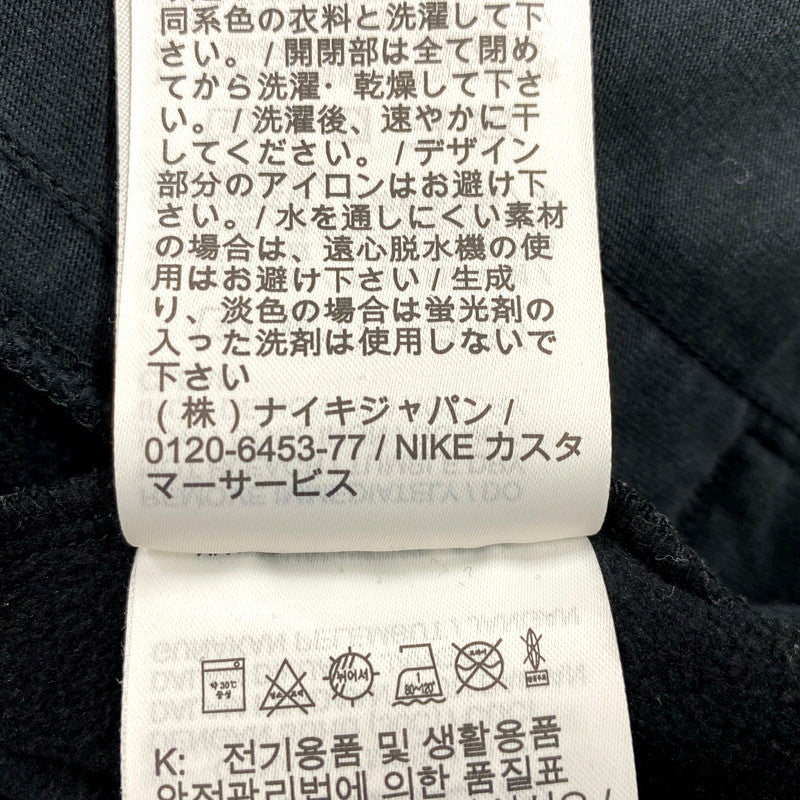 同系色の衣料と洗濯して下
さい。 / 開閉部は全て閉め
てから洗濯・乾燥して下さ
い。 / 洗濯後、速やかに干
してください。 / デザイン
部分のアイロンはお避け下
さい。 / 水を通しにくい素材
の場合は、遠心脱水機の使
用はお避け下さい / 生成
り、淡色の場合は蛍光剤の
入った洗剤は使用しないで
下さい
(株) ナイキジャパン /
0120-6453-77 / NIKE カスタ
マーサービス
약30℃
중성
뉘어서
1
80~120℃
K: 전기용품 및 생활용품
안전관리법에 의한 품질표